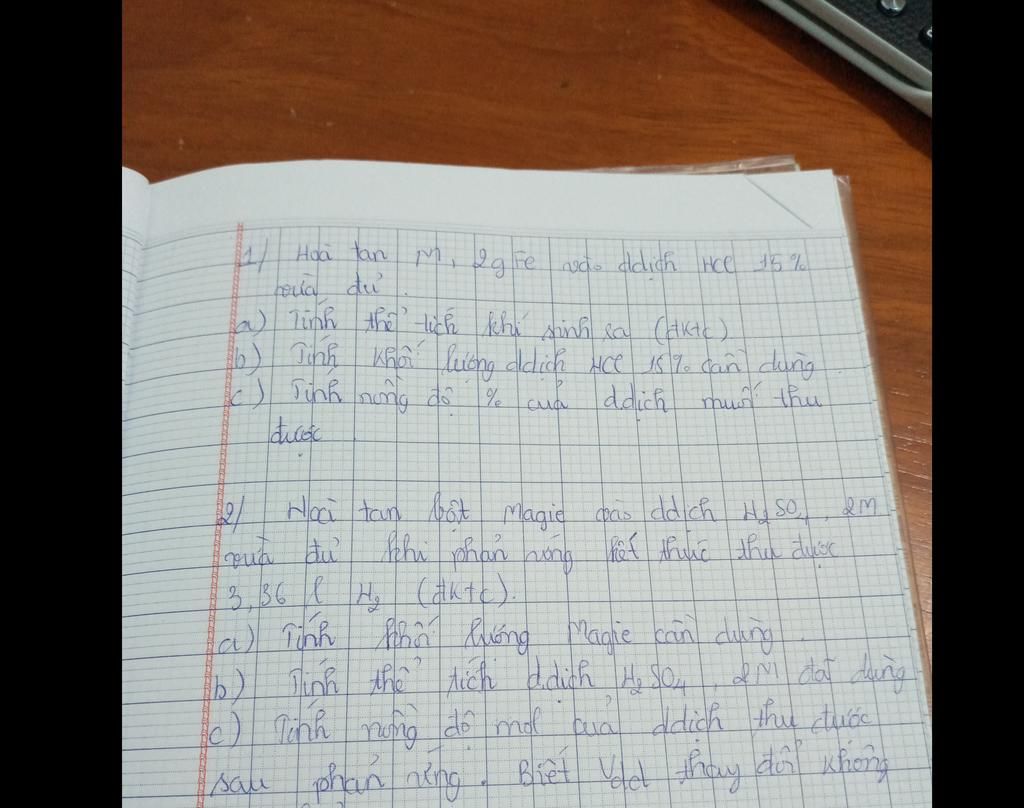 1) Hoà tan 11,2g Fe vào ddịch HCl 15%
vừa đủ.
a) Tính thể tích khí sinh ra (đktc)
b) Tính khối lượng ddịch HCl 15% cần dùng
c) Tính nồng độ % của ddịch muối thu
được
2) Hoà tan bột Magie vào ddịch H₂SO₄ 2M
vừa đủ khi phản ứng kết thúc thu được
3,36 l H₂ (đktc).
a) Tính khối lượng Magie cần dùng
b) Tính thể tích ddịch H₂SO₄ 2M đã dùng
c) Tính nồng độ mol của ddịch thu được
sau phản ứng. Biết Vdd thay đổi không